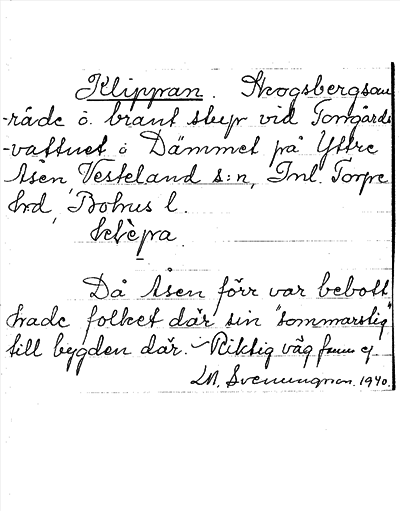 Klippan. Skogsbergsom
-råde o. brant stup vid Torrgårds
-vattnet o Dämmet på Yttre
Åsen, Vesteland s:n, Inl. Torpe
hrd, Bohus l.
klèpa
Då Åsen förr var bebott
hade folket där sin "sommarstig"
till bygden där. Riktig väg fanns ej.
Svenungson. 1940.